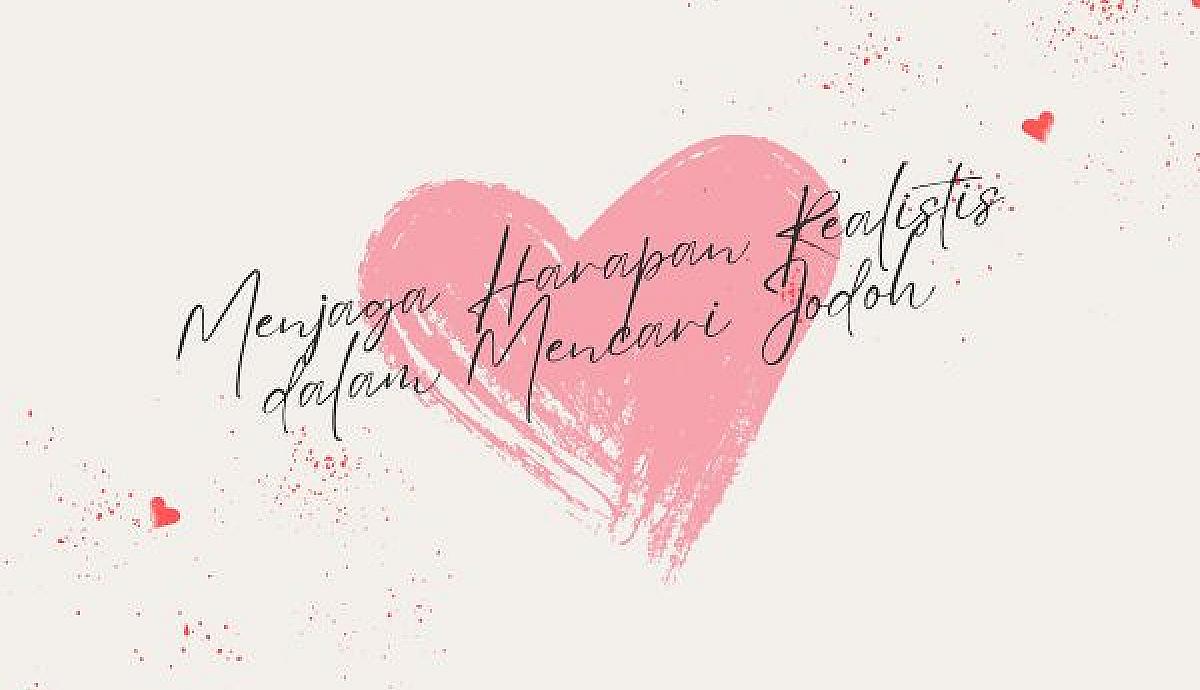 Menjaga Harapan Realistis
dalam Mencari Jodoh